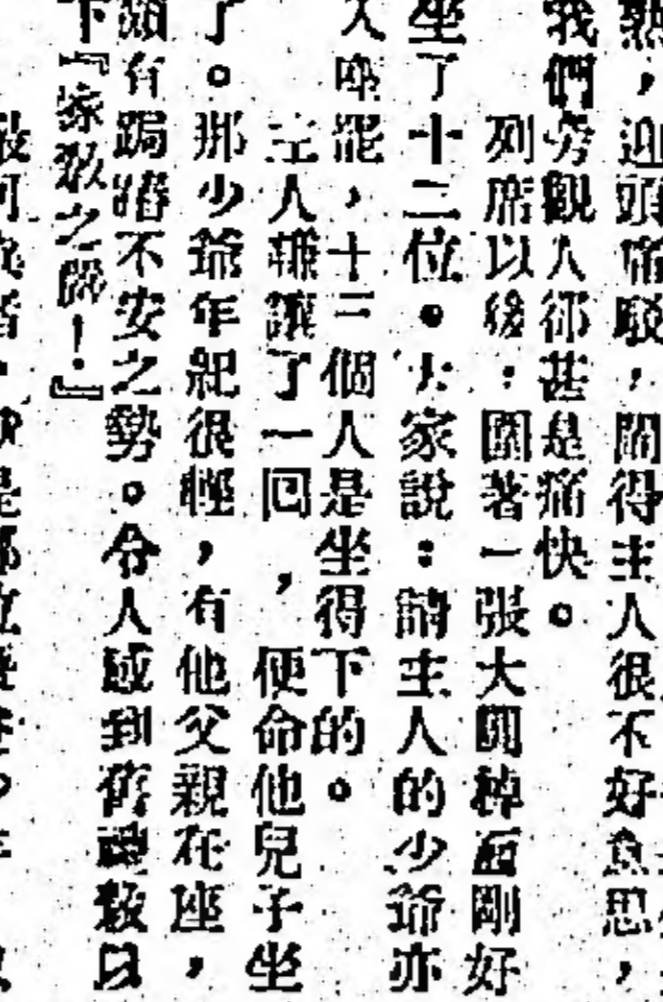 熟，迎頭痛駁，鬧得主人很不好意思，
我們旁觀人卻甚是痛快。
列席以後：圍著一張大圓棹面剛好
坐了十二位。大家說：請主人的少爺亦
入座罷，十三個人是坐得下的。
主人謙讓了一回，便命他兒子坐
了。那少爺年紀很輕，有他父親在座，
頗有跼蹐不安之勢。令人感到舊禮教以
下『家教之嚴！』